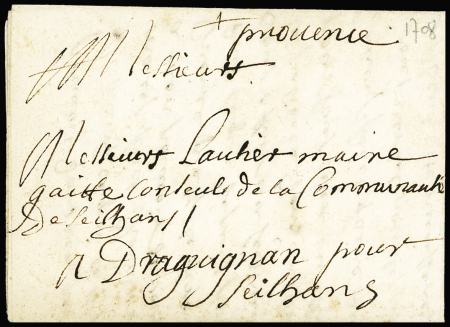 + provence
1708
Messieurs
Messieurs Lautier maire
gaitte Conseuls de la Communauté
De Seilhans
A Draguignan pour
Seilhans